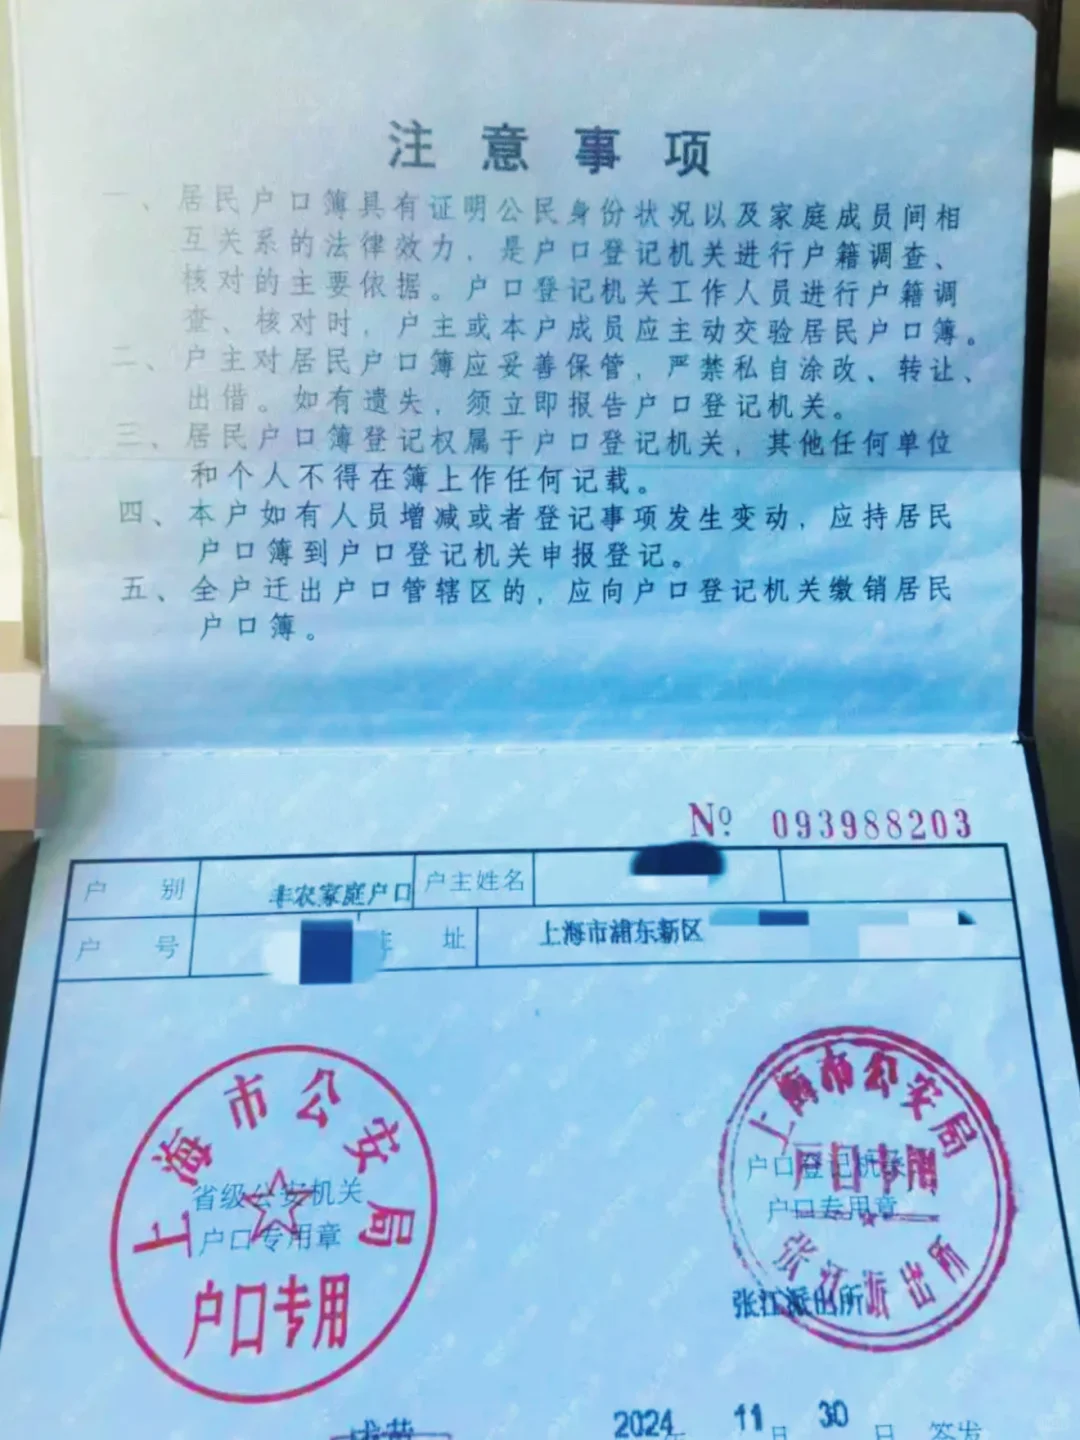 注意事项
一、居民户口簿具有证明公民身份状况以及家庭成员间相
互关系的法律效力，是户口登记机关进行户籍调查、
核对的主要依据。户口登记机关工作人员进行户籍调
查、核对时，户主或本户成员应主动交验居民户口簿。
二、户主对居民户口簿应妥善保管，严禁私自涂改、转让、
出借。如有遗失，须立即报告户口登记机关。
三、居民户口簿登记权属于户口登记机关，其他任何单位
和个人不得在簿上作任何记载。
四、本户如有人员增减或者登记事项发生变动，应持居民
户口簿到户口登记机关申报登记。
五、全户迁出户口管辖区的，应向户口登记机关缴销居民
户口簿。
№ 093988203
户别 非农家庭户口 户主姓名
户号 址 上海市浦东新区
上海市公安局
省级公安机关
户口专用章
户口专用
上海市公安局
户口专用
户口登记机关
户口专用章
张江派出所
张江派出所
2024年 11月 30日 签发